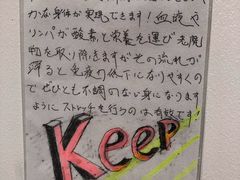 かな身体が実現できます！血液や
リンパが酸素と栄養を運び老廃
物を取り除きますがその流れが
滞ると免疫力低下になりやすくので
ぜひとも不調のない身になります
ようにストレッチを行うのは有効です！
Keep